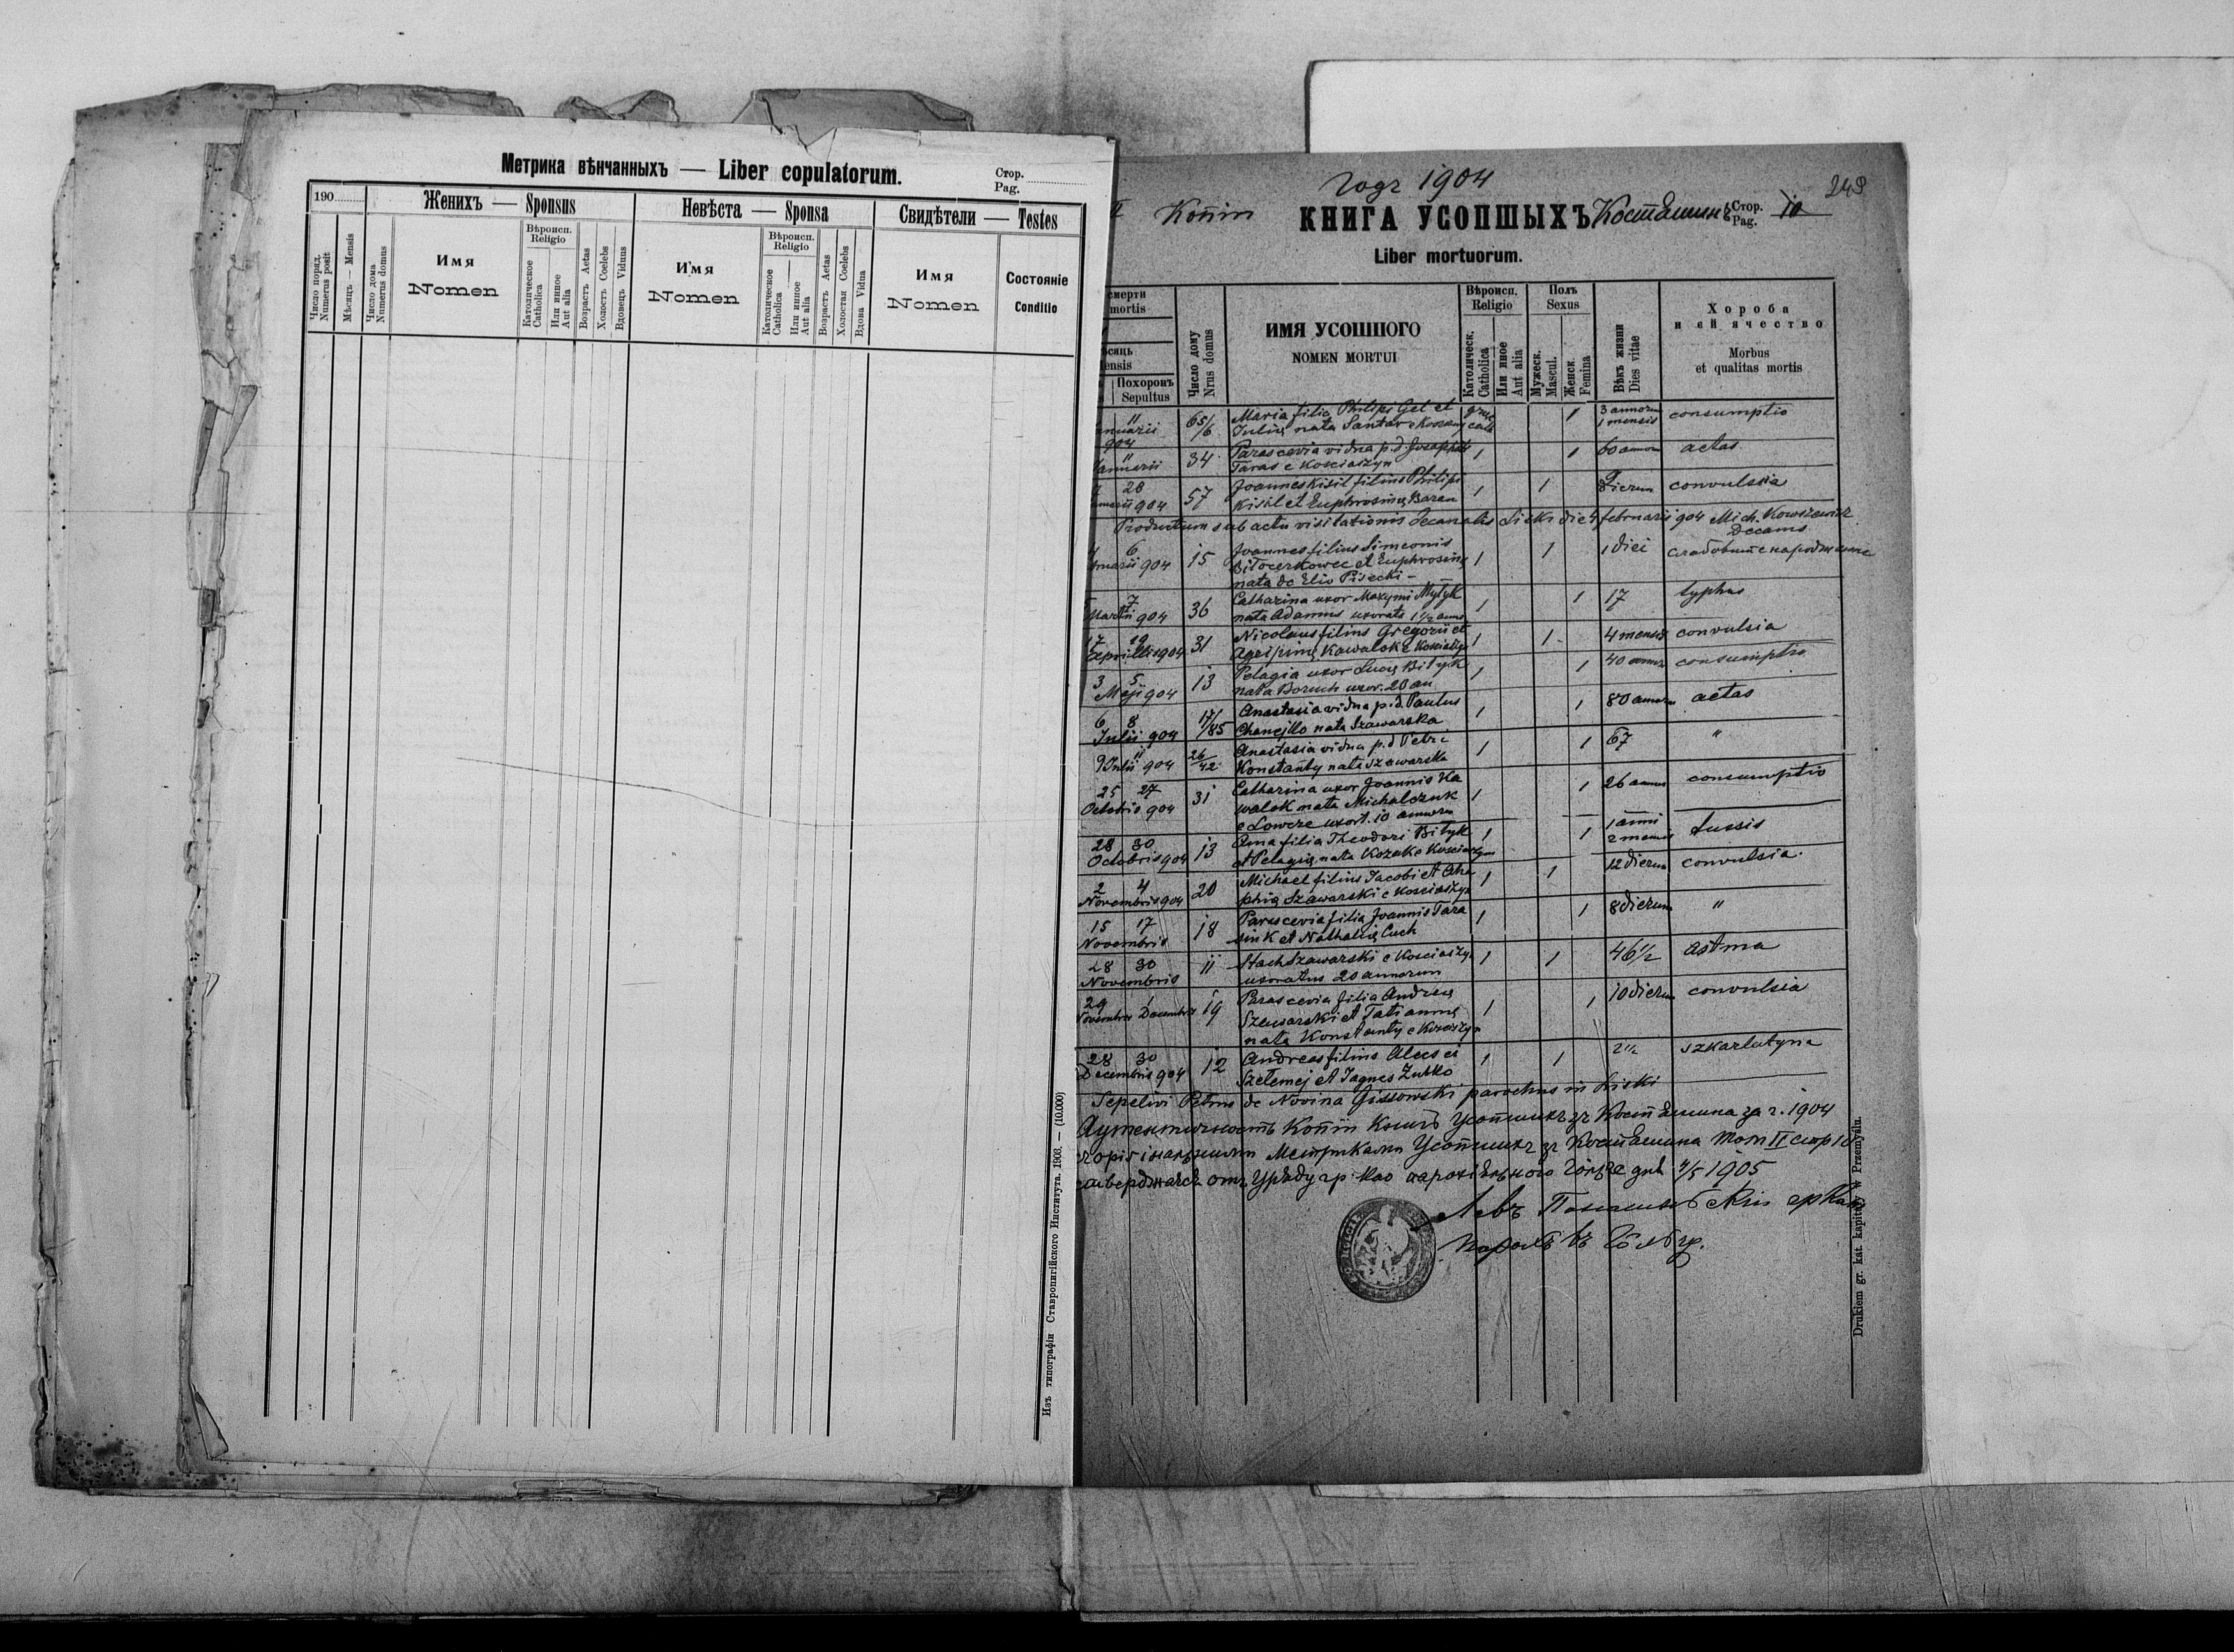 Метрика вѣнчанныхъ — Liber copulatorum.
Стор.
Pag.
190
Женихъ — Sponsus
Невѣста — Sponsa
Свидѣтели — Testes
Число поряд.
Numerus posit
Мѣсяць — Mensis
Число дома
Numerus domus
Имя
Nomen
Вѣроисп.
Religio
Католическое
Catholica
Или инное
Aut alia
Возрастъ Aetas
Холостъ Coelebs
Вдовецъ Viduus
Имя
Nomen
Вѣроисп.
Religio
Католическое
Catholica
Или инное
Aut alia
Возрастъ Aetas
Холостая Coelebs
Вдова Vidua
Имя
Nomen
Состояніе
Conditio
Изъ типографіи Ставропигійского Института. 1903. — (10.000)
Годъ 1904
Копія
КНИГА УСОПШЫХЪ
Стор.
Pag. 10
Liber mortuorum.
смерти
mortis
ensis
Похоронъ
Sepultus
Число дому
Nrus domus
ИМЯ УСОПШОГО
NOMEN MORTUI
Вѣроисп.
Religio
Католическ.
Catholica
Или инное
Aut alia
Полъ
Sexus
Мужеск.
Mascul.
Женск.
Femina
Вѣкъ жизни
Dies vitae
Хороба
и ей ячество
Morbus
et qualitas mortis
11
904
65/6
Maria filia Philipi Gel et
Iulię nata Santar
1
3 annorum
1 mensis
consumptio
11
34
Parascevia vidua p.d. Josaphat
Taras e Kosciaszyn
1
1
60 annorum
aetas
28
904
57
Joannes Kisil filius Philipi
Kisil et Euphrosinę Baran
1
1
9
dierum
convulsia
Productum sub actu visitationis Decanalis Liski die 4 februarii 904 Mich.
Decanus
6
904
15
Joannes filius Simeonis
Bilocerkowec et Euphrosinę
nata de Elio Pisecki
1
1
1 diei
7
Martii 904
36
Catharina uxor Maxymi Mytyk
nata Adamus uxorata 1 1/2 ann
1
1
17
typhus
17 19
Aprillis 904
31
Nicolaus filius Gregorii et
Agripinę Kawalok e Kosciaszyn
1
1
4 mensis
convulsia
3 5
Maji 904
13
Pelagia uxor Lucę Bityk
nata Boruch uxor. 20 an
1
1
40 annor
consumptio
6 8
Iulii 904
17/85
Anastasia vidua p.d. Paulus
nata Szawarska
1
1
80 annorum
aetas
9 11
Iulii 904
26/42
Anastasia vidua p.d Petri
Konstanty nata Szawarska
1
1
67
"
25 27
Octobris 904
31
Catharina uxor Joannis Ka
walok nata Michalczuk
e Lowcze uxort. 10 annorum
1
1
26 annor
consumptio
28 30
Octobris 904
13
Anna filia Theodori Bityk
et Pelagię nata Kozak e Kosciaszyn
1
1
1 anni
2 menses
tussis
2 4
Novembris 904
20
Michael filius Jacobi et Aha
phię Szawarski e Kosciaszyn
1
1
12 dierum
convulsia.
15 17
Novembris
18
Parascevia filia Joannis Tara
siuk et Nathalię Cuch
1
1
8 dierum
"
28 30
Novembris
11
Stach Szawarski e Kosciaszyn
uxoratus 20 annorum
1
1
46 1/2
astma
29 1
Novembris Decembris
19
Parascevia filia Andreę
Szawarski et Tatiannę
nata Konstanty e Kosciaszyn
1
1
10 dierum
convulsia
28 30
Decembris 904
12
Andreas filius Alecsei
Szelemej et Jagnes Zubko
1
1
2 1/2
szkarlatyna
Sepelivi Petrus de Novina Gissowski parochus in Liski
Аутентичность Копіи Книгъ Усопшихъ зъ Костяшина за г. 1904
Метриками Усопшихъ зъ Костяшина Том II стор 10
1905
Левъ
Drukiem gr. kat. kapituły w Przemyślu.